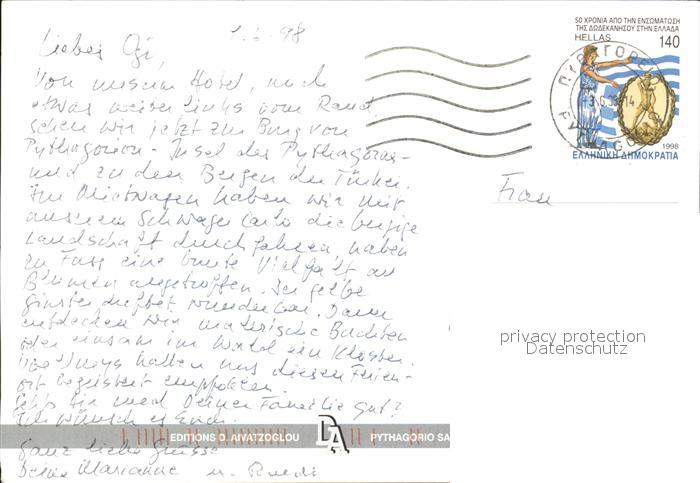 1.6.98
Lieber Ogi,
Von unserem Hotel, noch
etwas weiter links vom Rand,
sehen wir jetzt zur Burg von
Pythagorion - Insel des Pythagoras -
und zu den Bergen der Türkei.
Im Mietwagen haben wir mit
unserem Schwager Carlo die bergige
Landschaft durchfahren, haben
zu Fuss eine bunte Vielfalt an
Blumen angetroffen. Der gelbe
Ginster duftet wunderbar. Dann
entdecken wir malerische Buchten
oder einsam im Wald ein Kloster.
haben uns diesen Ferien-
ort begeistert empfohlen.
Geht's Dir und Deiner Familie gut?
Ich wünsch es Euch.
Ganz liebe Grüsse
Deine Marianne u. Ruedi
50 ΧΡΟΝΙΑ ΑΠΟ ΤΗΝ ΕΝΣΩΜΑΤΩΣΗ
ΤΗΣ ΔΩΔΕΚΑΝΗΣΟΥ ΣΤΗΝ ΕΛΛΑΔΑ
HELLAS 140
1998
ΕΛΛΗΝΙΚΗ ΔΗΜΟΚΡΑΤΙΑ
Frau
privacy protection
Datenschutz
EDITIONS D. AIVATZOGLOU DA PYTHAGORIO SA